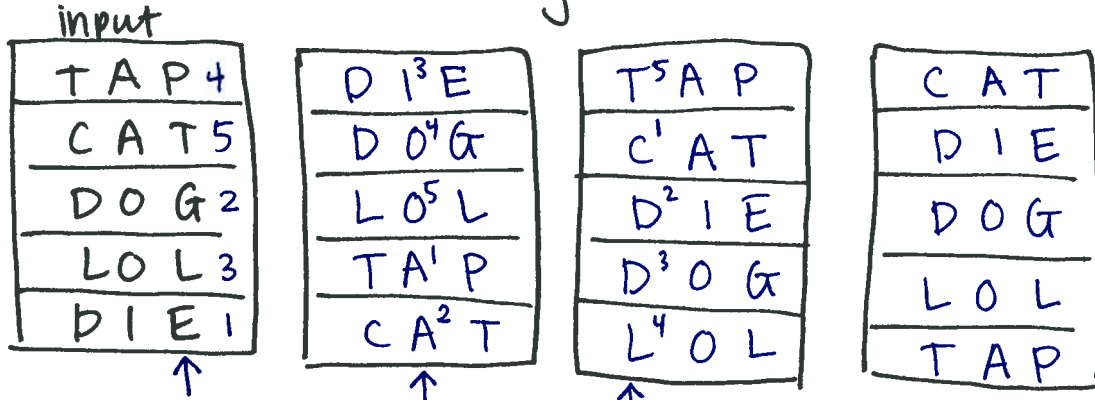 input
TAP4
CAT5
DOG2
LOL3
DIE1
DI³E
DO⁴G
LO⁵L
TA¹P
CA²T
T⁵AP
C¹AT
D²IE
D³OG
L⁴OL
CAT
DIE
DOG
LOL
TAP